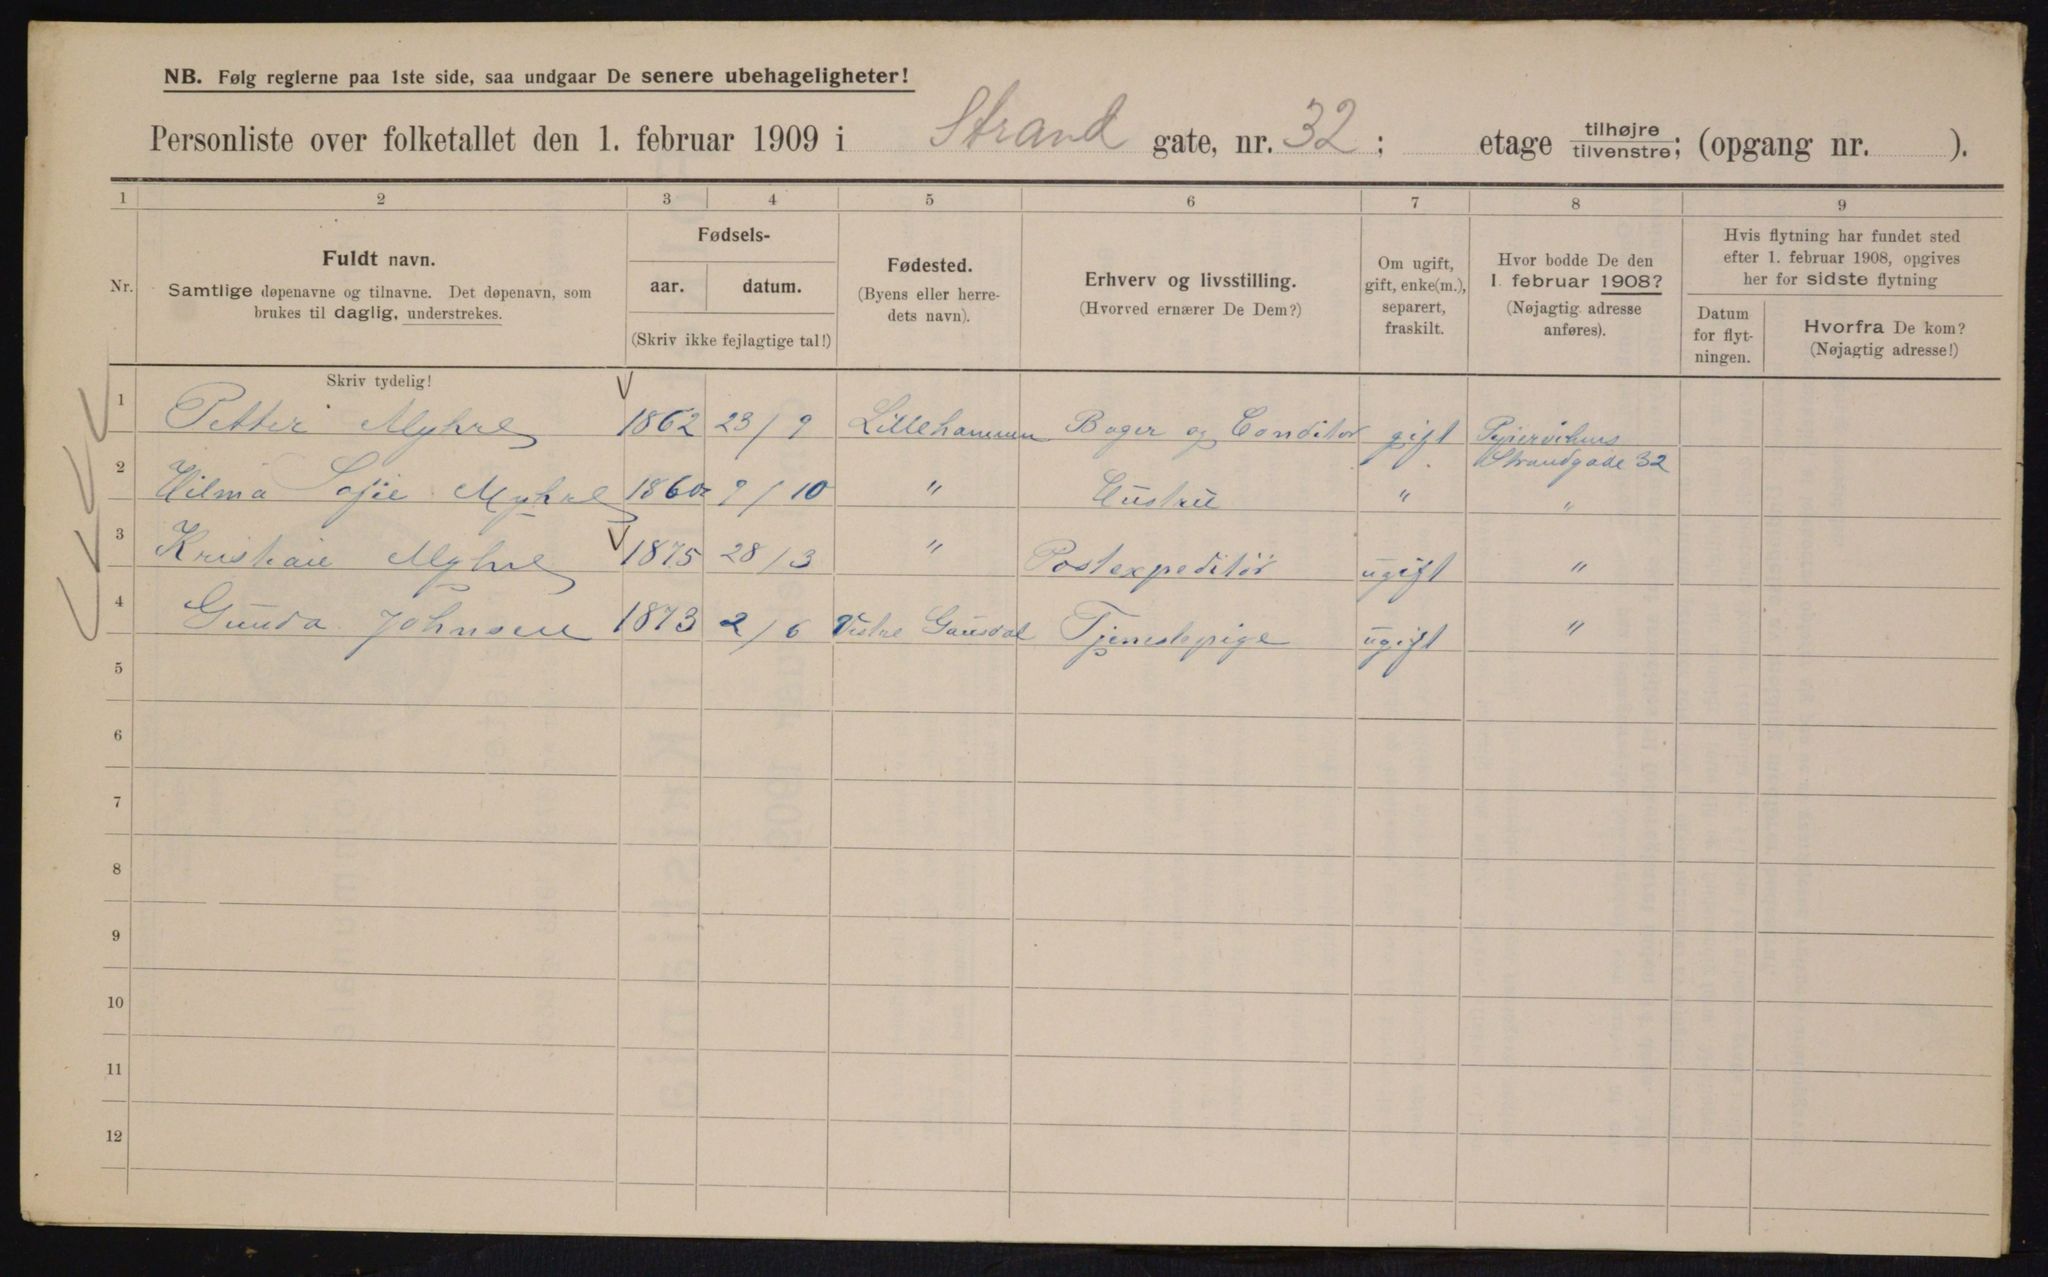 NB. Følg reglerne paa 1ste side, saa undgaar De senere ubehageligheter!
Personliste over folketallet den 1. februar 1909 i Strand gate, nr. 32; etage tilhøjre/tilvenstre; (opgang nr. ).
1 2 3 4 5 6 7 8 9
Nr.
Fuldt navn.
Samtlige døpenavne og tilnavne. Det døpenavn, som
brukes til daglig, understrekes.
Skriv tydelig!
Fødsels-
aar. datum.
(Skriv ikke fejlagtige tal!)
Fødested.
(Byens eller herre-
dets navn).
Erhverv og livsstilling.
(Hvorved ernærer De Dem?)
Om ugift,
gift, enke(m.),
separert,
fraskilt.
Hvor bodde De den
1. februar 1908?
(Nøjagtig adresse
anføres).
Hvis flytning har fundet sted
efter 1. februar 1908, opgives
her for sidste flytning
Datum
for flyt-
ningen.
Hvorfra De kom?
(Nøjagtig adresse!)
1 Petter Myhre 1862 23/9 Lillehammer Bager og Conditor gift
Strandgade 32
2 Hilma Sofie Myhre 1860 9/10 " Hustru " "
3 Kristiane Myhre 1875 28/3 " Postexpeditør ugift "
4 Gunda Johnsen 1873 2/6 Vestre Gausdal Tjenestepige ugift "
5
6
7
8
9
10
11
12